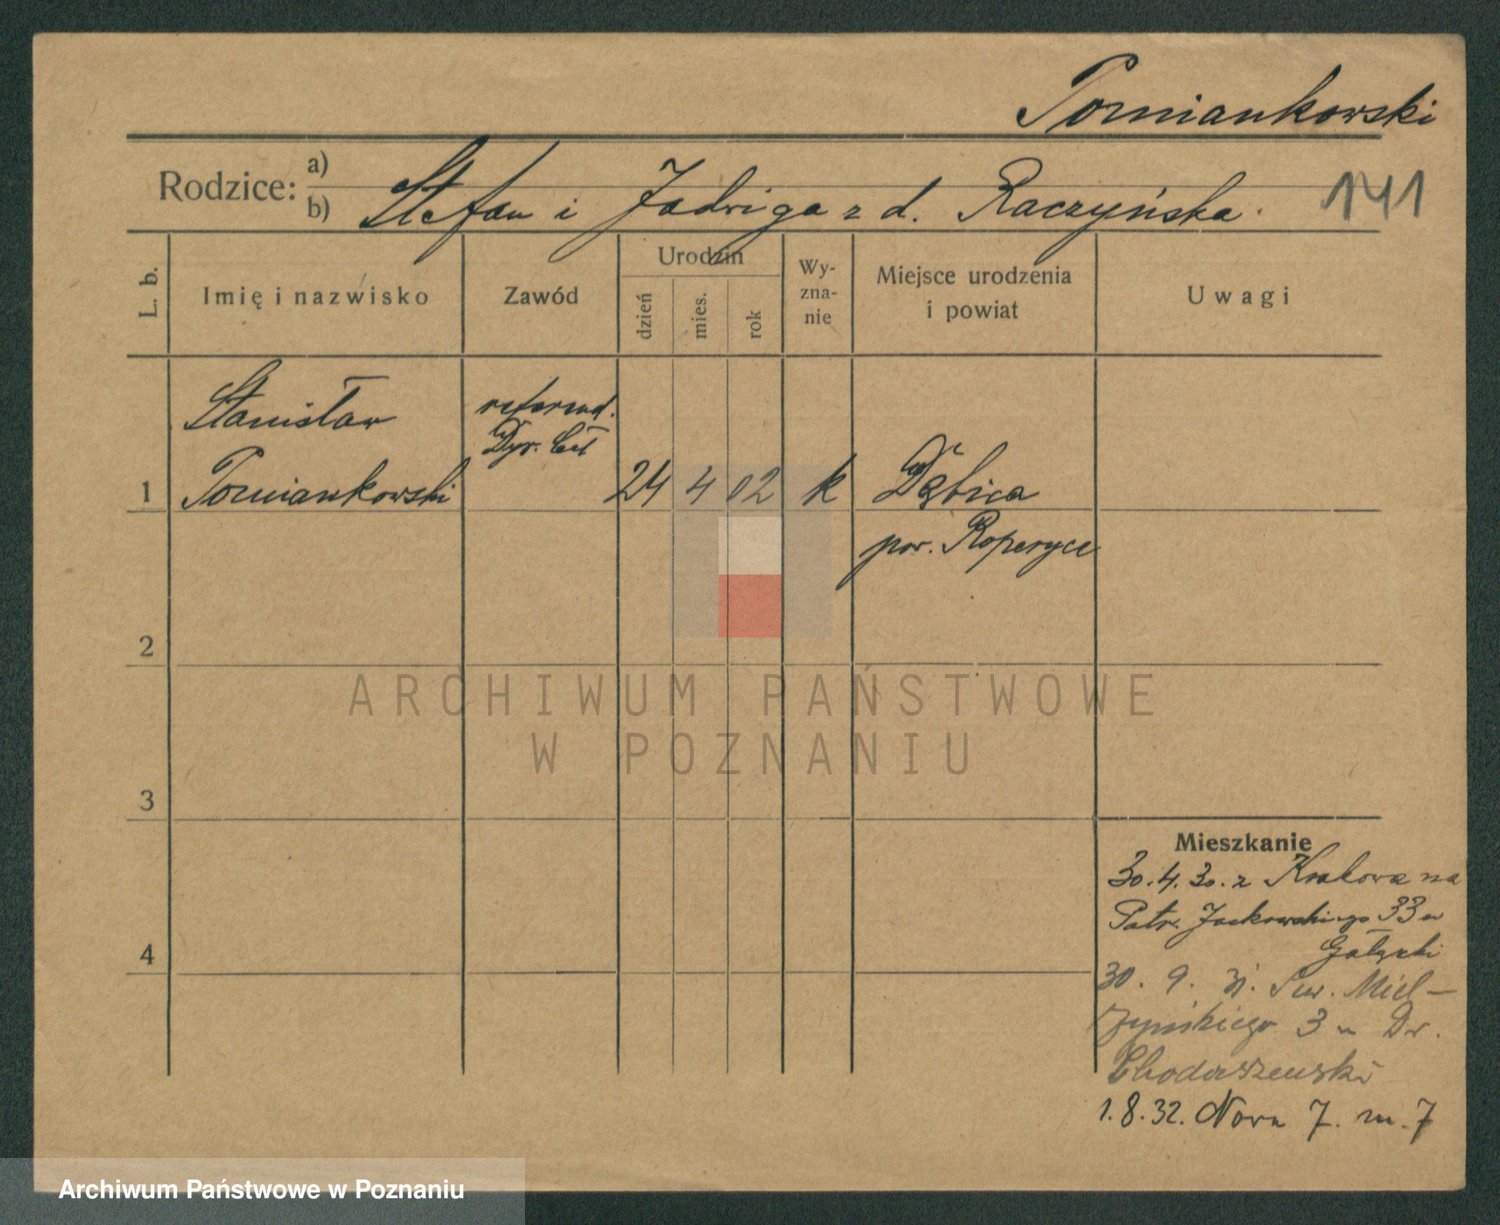 Pomiankowski
Rodzice: a)
b) Stefan i Jadwiga z d. Raczyńska. 141
L. b.
Imię i nazwisko
Zawód
Urodzin
dzień
mies.
rok
Wy-
zna-
nie
Miejsce urodzenia
i powiat
Uwagi
Stanisław
referend.
Dyr. Ceł
1 Pomiankowski 24 4 02 k Dębica
pow. Ropczyce
2
3
4
Mieszkanie
30.4.30. z Krakowa na
Patr. Jackowskiego 33 u
Gałęzki
30. 9. 31. Sew. Miel-
żyńskiego 3 u Dr.
1.8.32. Nowa 7. m. 7
ARCHIWUM PAŃSTWOWE
W POZNANIU
Archiwum Państwowe w Poznaniu